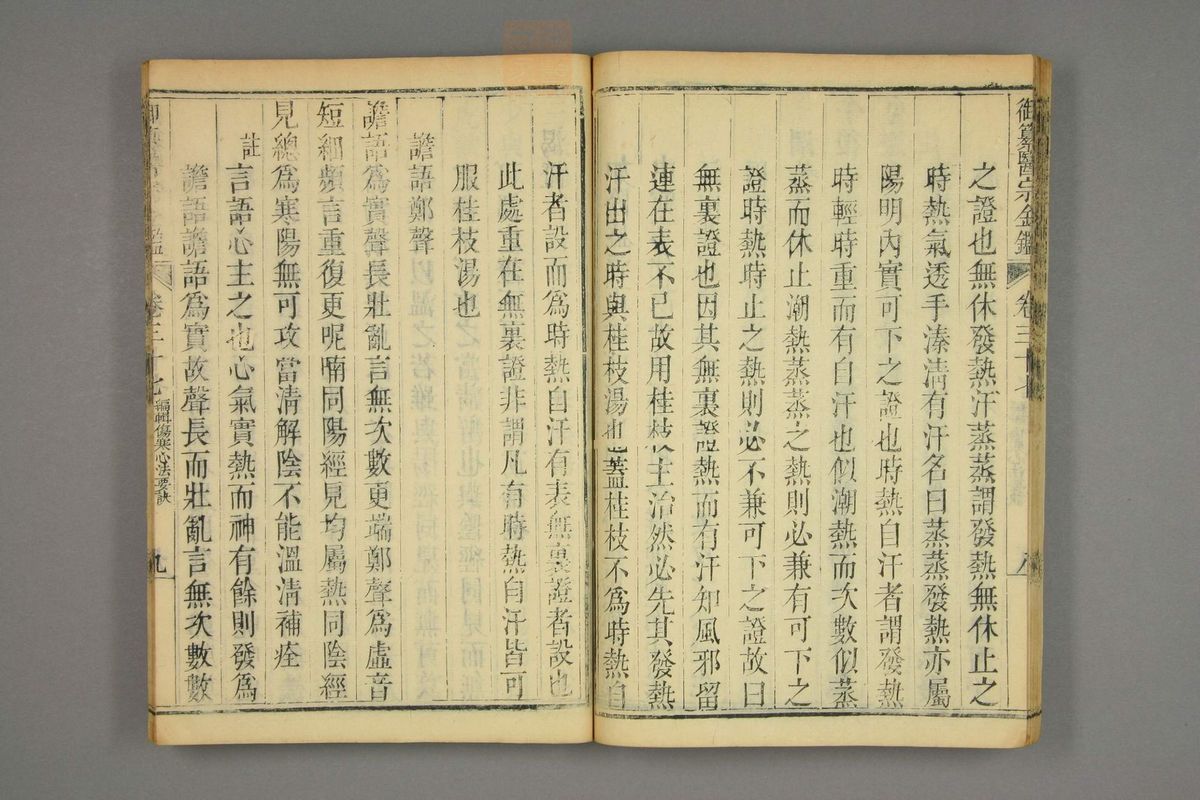 御纂醫宗金鑑 卷三十七 八
之證也無休發熱汗蒸蒸謂發熱無休止之
時熱氣透手溱溱有汗名曰蒸蒸發熱亦屬
陽明內實可下之證也時熱自汗者謂發熱
時輕時重而有自汗也似潮熱而次數似蒸
蒸而休止潮熱蒸蒸之熱則必兼有可下之
證時熱時止之熱則必不兼可下之證故曰
無裏證也因其無裏證熱而有汗知風邪留
連在表不已故用桂枝主治然必先其發熱
汗出之時與桂枝湯也蓋桂枝不爲時熱自
汗者設而爲時熱自汗有表無裏證者設也
此處重在無裏證非謂凡有時熱自汗皆可
服桂枝湯也
譫語鄭聲
譫語爲實聲長壯亂言無次數更端鄭聲爲虛音
短細頻言重復更呢喃同陽經見均屬熱同陰經
見總爲寒陽無可攻當清解陰不能溫清補痊
註言語心主之也心氣實熱而神有餘則發爲
譫語譫語爲實故聲長而壯亂言無次數數
卷三十七 編輯傷寒心法要訣 九